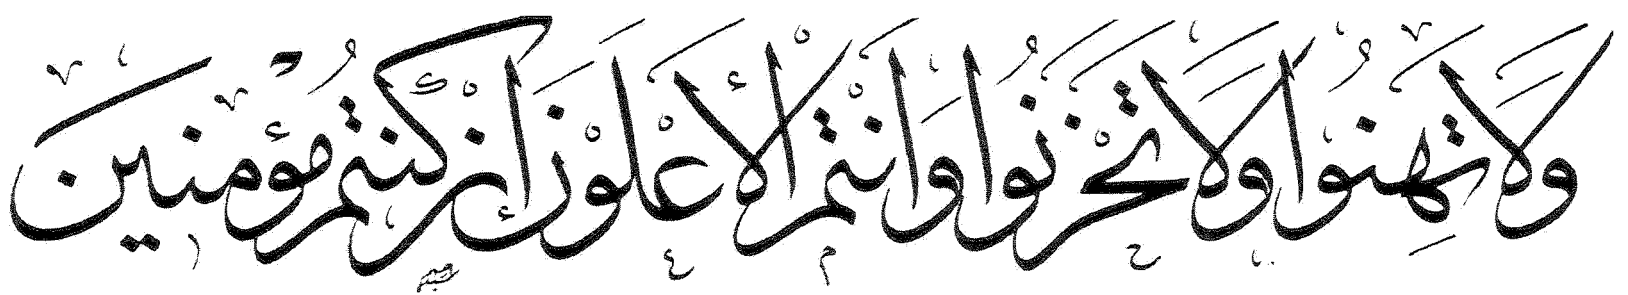 ولا تهنوا ولا تحزنوا وانتم الأعلون إن كنتم مؤمنين